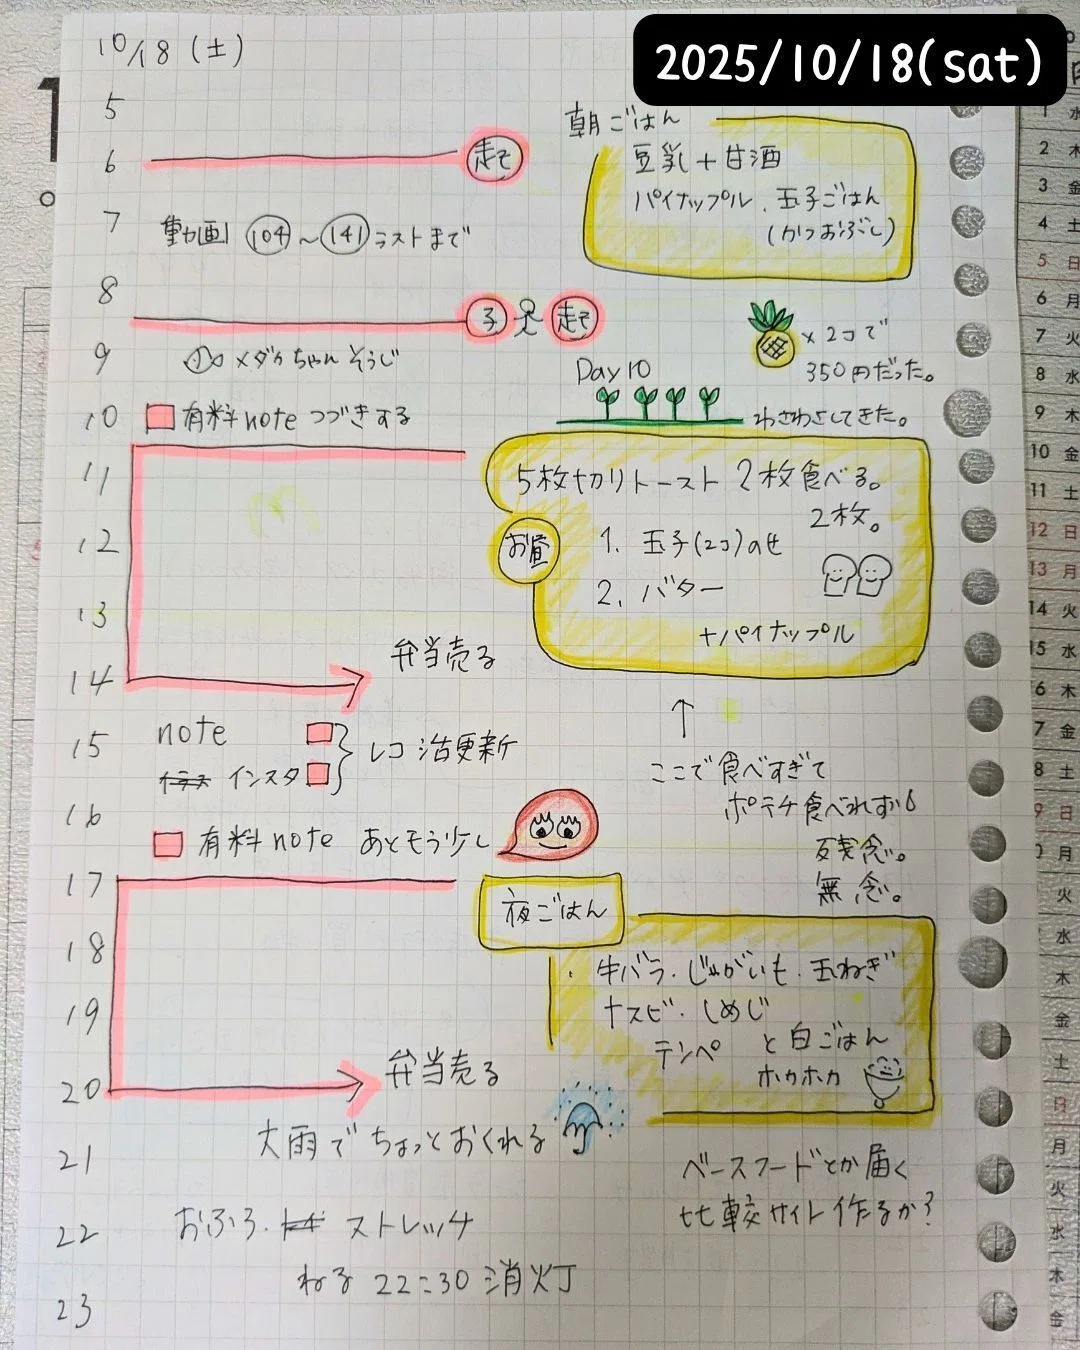 2025/10/18(sat)
10/18 (土)
5
6
起て
朝ごはん
豆乳+甘酒
パイナップル、玉子ごはん
(かつおぶし)
7
動画 104~141 ラストまで
8
子 起て
×2コで
350円だった。
9
メダカちゃん そうじ
Day10
わさわさしてきた。
10
有料note つづきする
11
5枚切りトースト 2枚食べる。
2枚。
12
お昼
1. 玉子(2コ)のせ
2. バター
+パイナップル
13
弁当売る
14
15
note
インスタ
レコ活更新
↑
ここで食べすぎて
ポテチ食べれず
残念。
無念。
16
有料note あともう少し
17
夜ごはん
18
・牛バラ・じゃがいも・玉ねぎ
ナスビ・しめじ
テンペ と白ごはん
ホカホカ
19
20
弁当売る
大雨でちょっとおくれる
21
ベースフードとか届く
比較サイト作るか?
22
おふろ・ ストレッチ
ねる 22:30 消灯
23
1 水
2 木
3 金
4 土
5 日
6 月
7 火
8 水
9 木
10 金
11 土
12 日
13 月
14 火
15 水
6 木
7 金
8 土
9 日
0 月
火
水
木
金
土
日
月
火
水
木
金